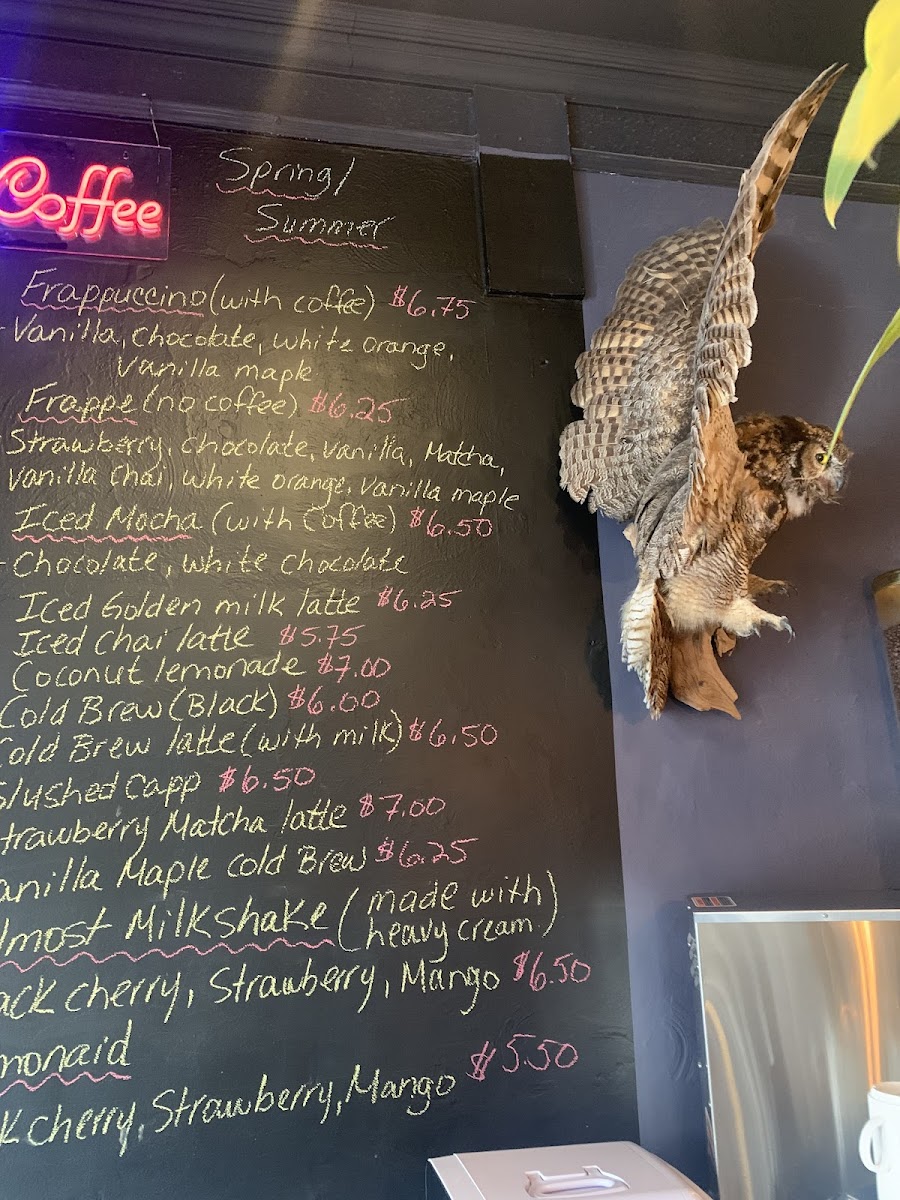 Coffee
Spring/
Summer
Frappuccino (with coffee) $6.75
- Vanilla, chocolate, white orange,
Vanilla maple
Frappe (no coffee) $6.25
Strawberry, chocolate, vanilla, Matcha,
vanilla chai, white orange, vanilla maple
Iced Mocha (with Coffee) $6.50
- Chocolate, white chocolate
Iced Golden milk latte $6.25
Iced Chai latte $5.75
Coconut lemonade $7.00
Cold Brew (Black) $6.00
Cold Brew latte (with milk) $6.50
Slushed Capp $6.50
trawberry Matcha latte $7.00
anilla Maple cold Brew $6.25
lmost Milkshake (made with
heavy cream)
ack cherry, Strawberry, Mango $6.50
monaid
k cherry, Strawberry, Mango $5.50